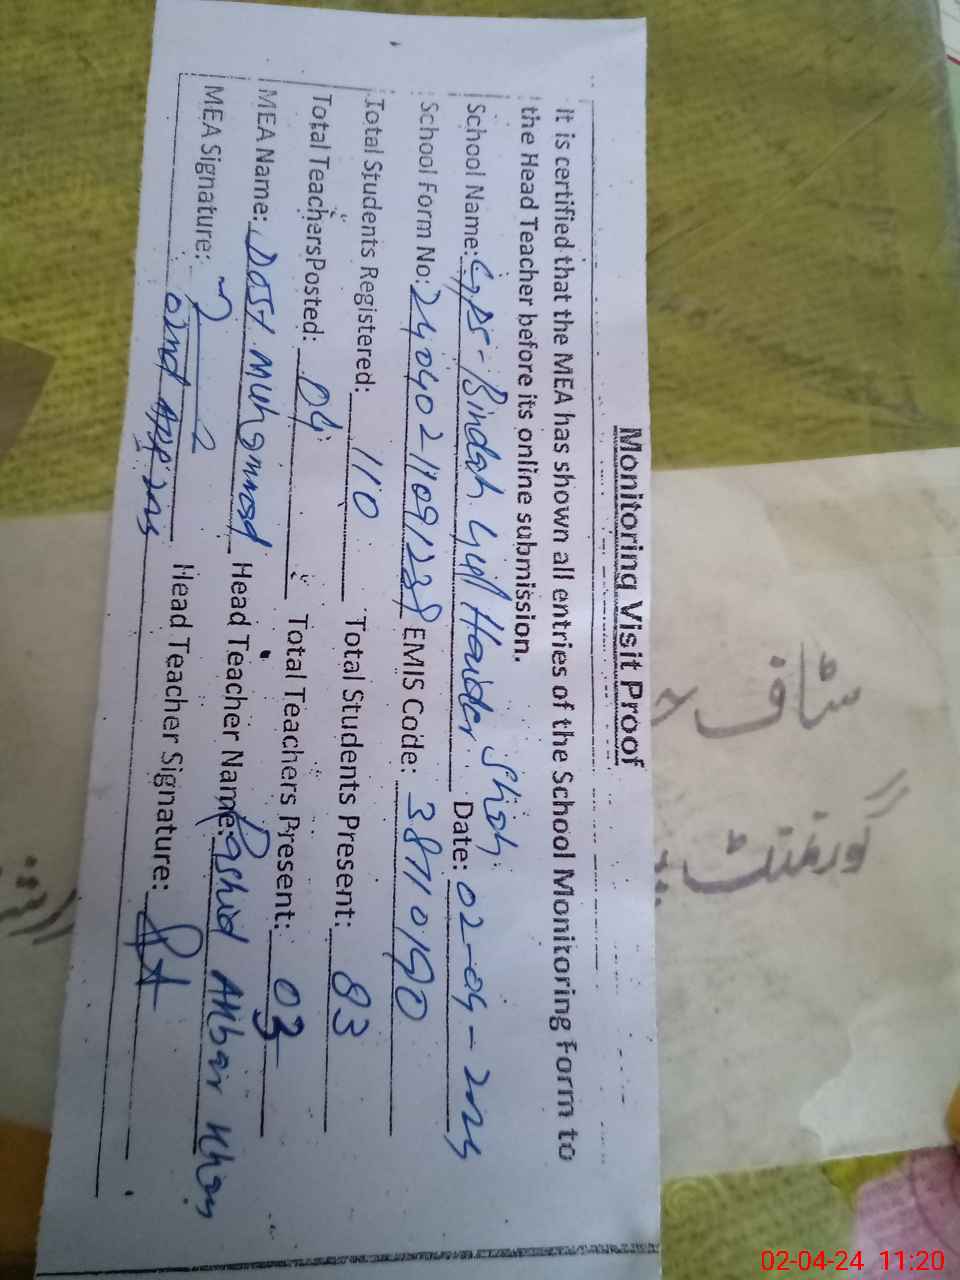 Monitoring Visit Proof
It is certified that the MEA has shown all entries of the School Monitoring Form to
the Head Teacher before its online submission.
School Name: GPS - Bindah Gul Haider Shah Date: 02-04-2024
School Form No: EMIS Code:
Total Students Registered: 110 Total Students Present: 83
Total Teachers Posted: 04 Total Teachers Present: 03
MEA Name: Dost Muhammad Head Teacher Name: Rashid Akbar Khan
MEA Signature: Head Teacher Signature:
02nd Apr 2024
سٹاف
گورنمنٹ
02-04-24 11:20